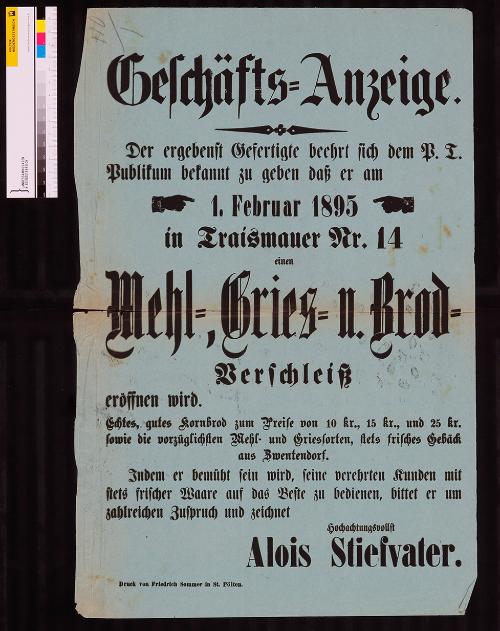 Geschäfts=Anzeige.
Der ergebenst Gefertigte beehrt sich dem P. T.
Publikum bekannt zu geben daß er am
1. Februar 1895
in Traismauer Nr. 14
einen
Mehl=, Gries= u. Brod=
Verschleiß
eröffnen wird.
Echtes, gutes Kornbrod zum Preise von 10 kr., 15 kr., und 25 kr.
sowie die vorzüglichsten Mehl- und Griessorten, stets frisches Gebäck
aus Zwentendorf.
Indem er bemüht sein wird, seine verehrten Kunden mit
stets frischer Waare auf das Beste zu bedienen, bittet er um
zahlreichen Zuspruch und zeichnet
Hochachtungsvollst
Alois Stiefvater.
Druck von Friedrich Sommer in St. Pölten.